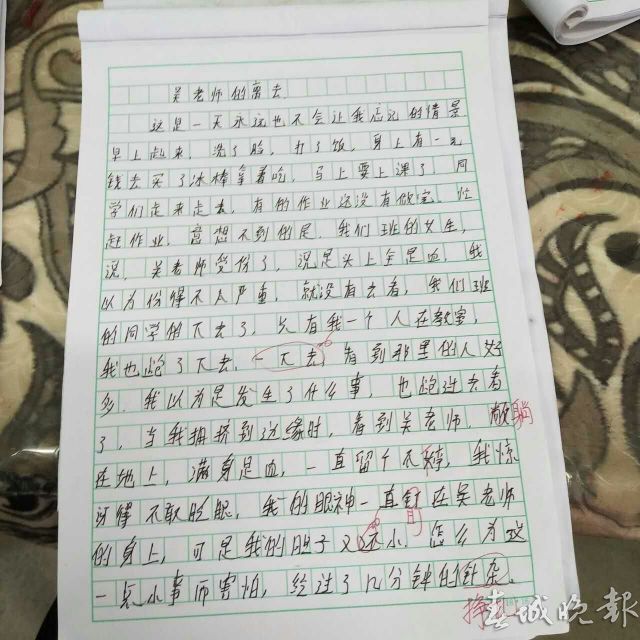 吴老师的离去
这是一天永远也不会让我忘记的情景
早上起来，洗了脸，打了饭，身上有一元
钱去买了冰棒拿着吃，马上要上课了，同
学们走来走去，有的作业还没有做完，忙
赶作业，意想不到的是，我们班的女生，
说，吴老师受份了，说是头上全是血，我
以为份得不太严重，就没有去看，我们班
的同学的下去了，只有我一个人在教室，
我也跑了下去，一下去，看到那里的人好
多，我以为是发生了什么事，也跑过去看
了，当我拥挤到边缘时，看到吴老师，躺
在地上，满身是血，一直留个不停，我惊
讶得不敢眨眼，我的眼神一直盯在吴老师
的身上，可是我的胆子又还小，怎么为这
一点小事而害怕，经过了几分钟的针杂，
挣
春城晚报